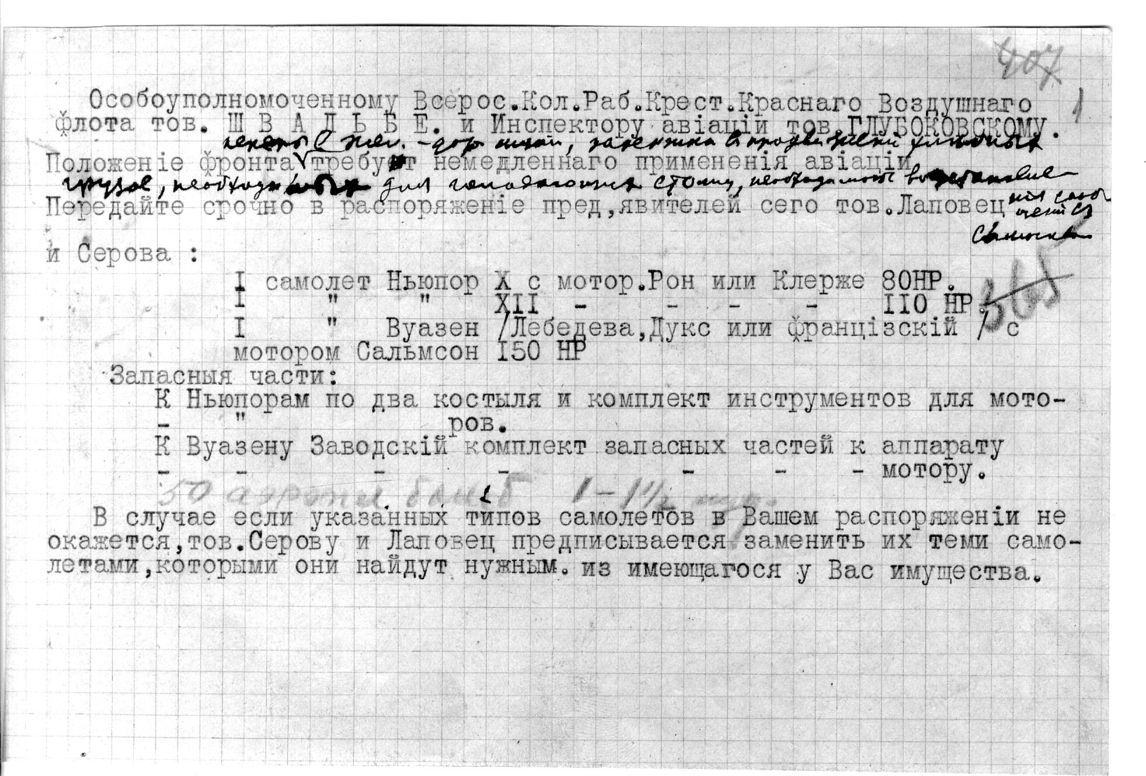 407
1
Особоуполномоченному Всерос.Кол.Раб.Крест.Краснаго Воздушнаго
флота тов. Ш В А Л Ь Б Е. и Инспектору авіацій тов ГЛУБОКОВСКОМУ.
жел. - дор линии, задержка в продвижении хлебных
Положеніе фронта требует немедленнаго примененія авіаціи
грузов, необходимых для голодающих столиц, необходимость
Передайте срочно в распоряженіе пред,явителей сего тов.Лаповец
и Серова :
I самолет Ньюпор X с мотор.Рон или Клерже 80НР.
I " " XII - - - - 110 НР.
365
I " Вуазен /Лебедева,Дукс или францізскій / с
мотором Сальмсон 150 НР
Запасныя части:
К Ньюпорам по два костыля и комплект инструментов для мото-
- " ров.
К Вуазену Заводскій комплект запасных частей к аппарату
- - - - - - - мотору.
50 аэропл бомб 1-1½ пуд.
В случае если указанных типов самолетов в Вашем распоряженіи не
окажется,тов.Серову и Лаповец предписывается заменить их теми само-
летами,которыми они найдут нужным. из имеющагося у Вас имущества.